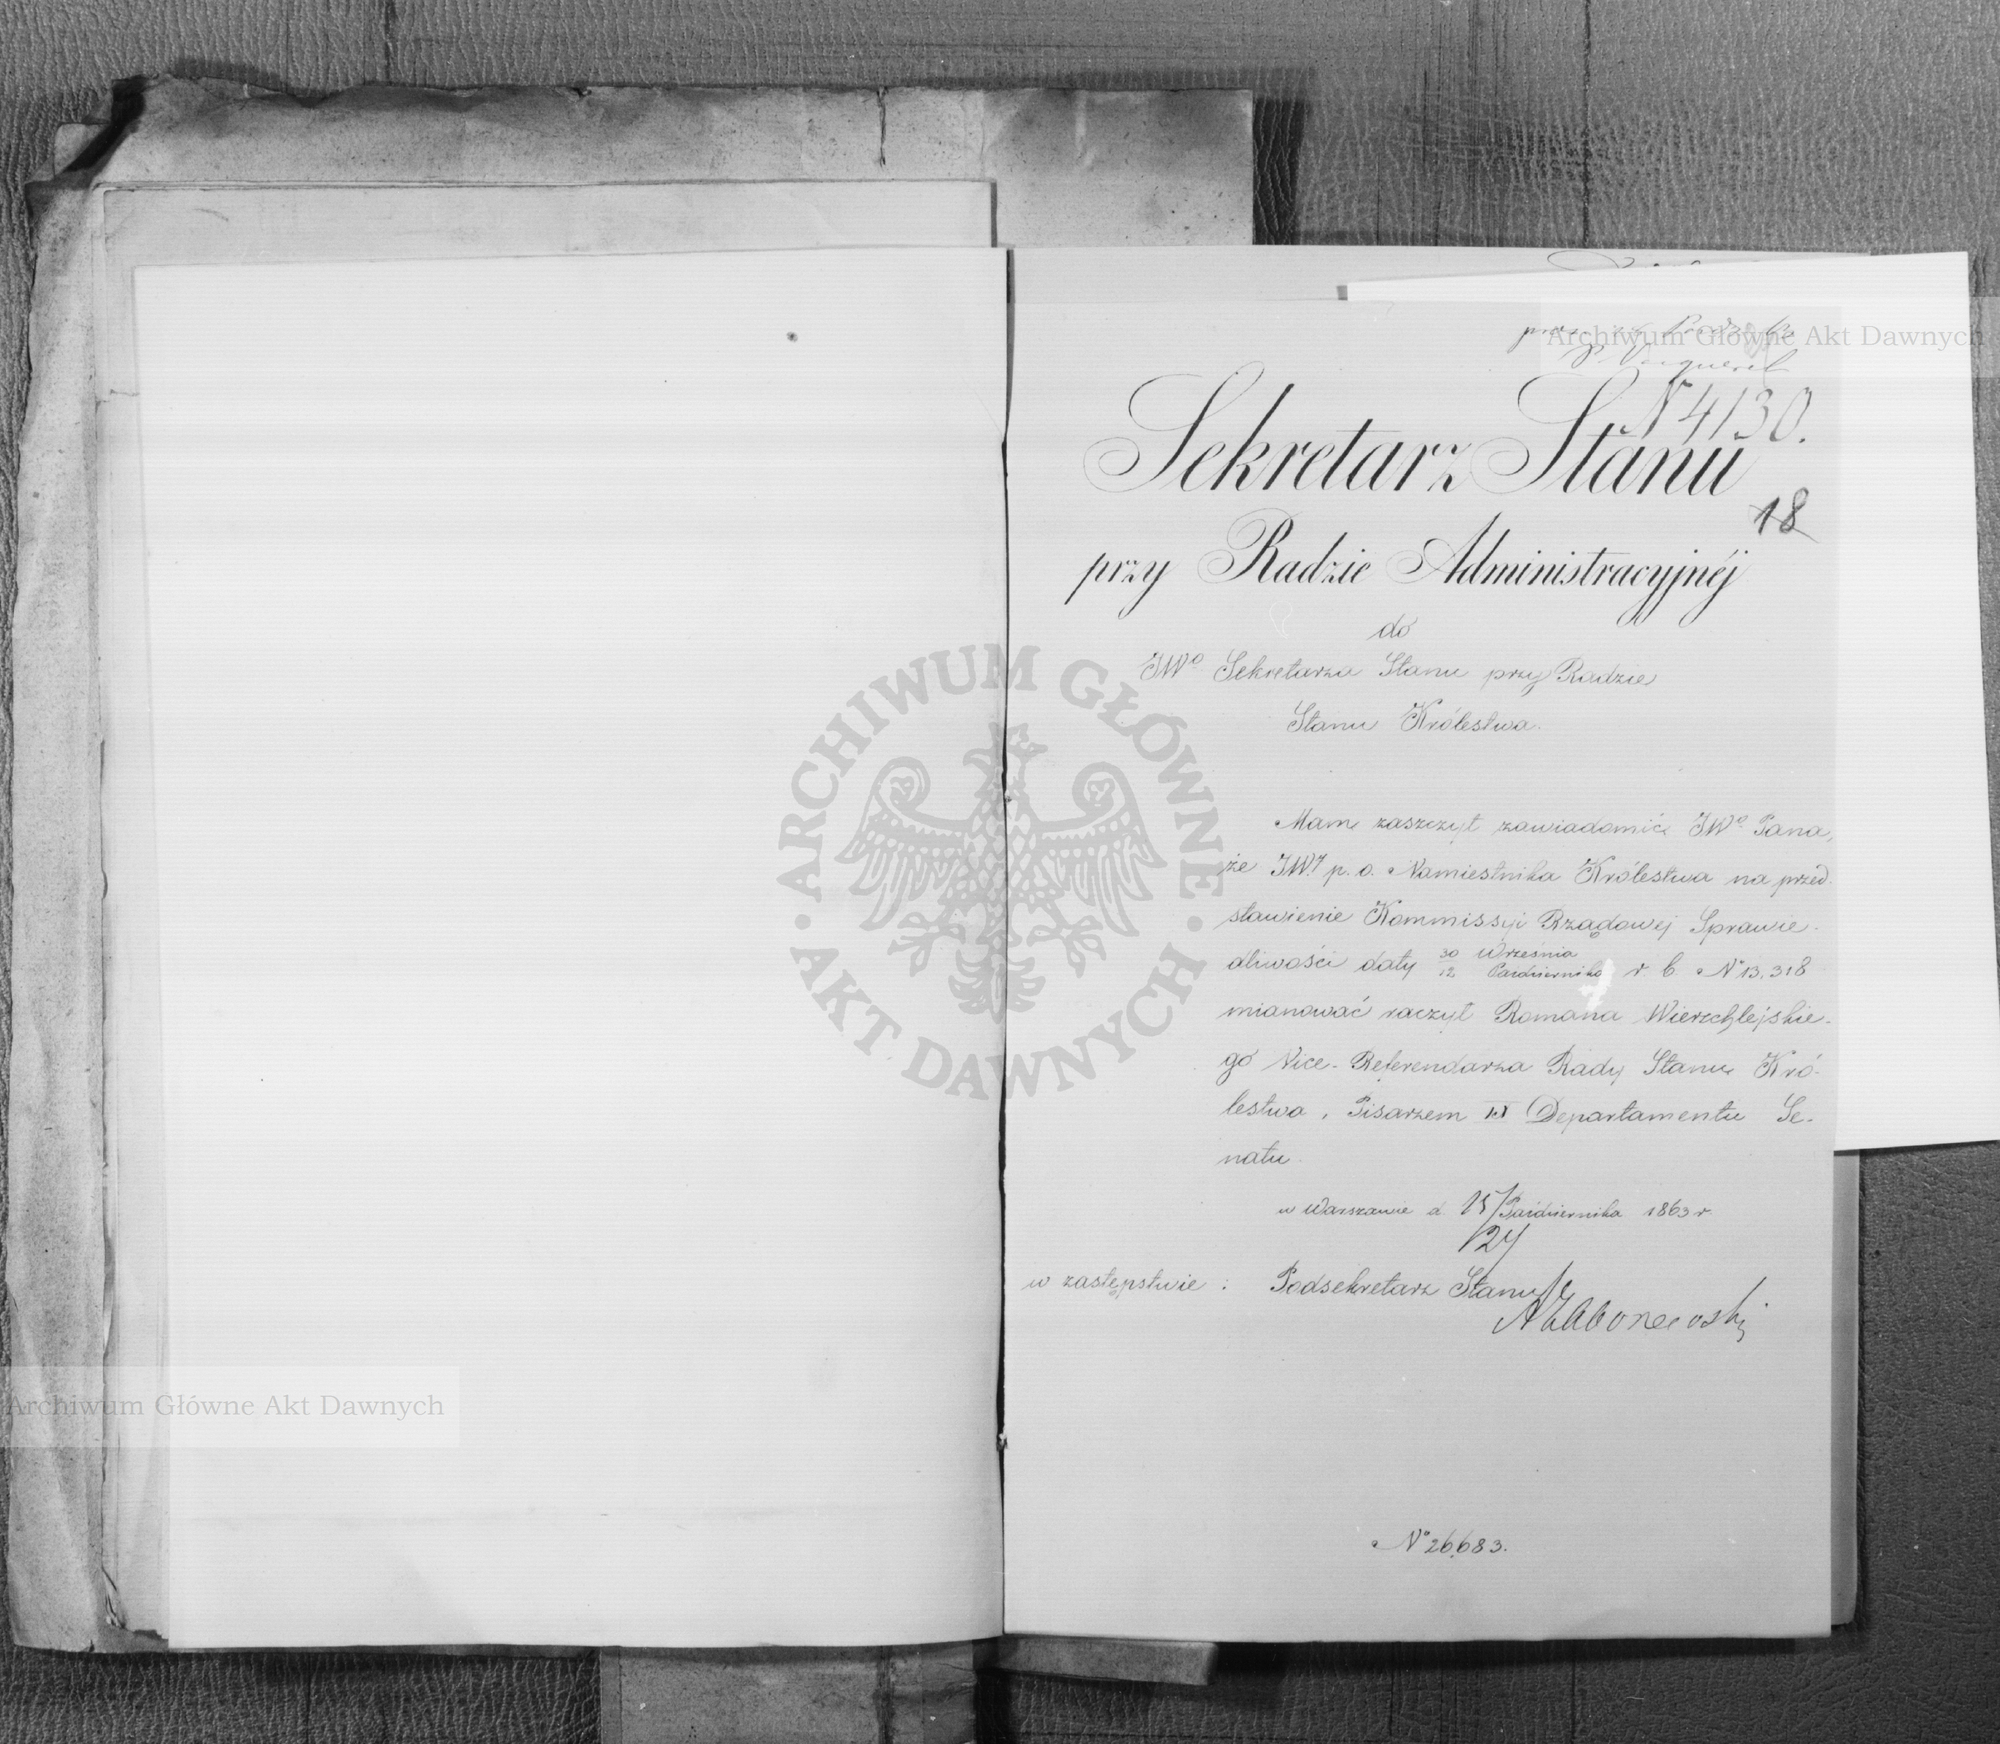 Archiwum Główne Akt Dawnych
N 4130.
Sekretarz Stanu
18
przy Radzie Administracyjnéj
do
JWo Sekretarza Stanu przy Radzie
Stanu Królestwa.
Mam zaszczyt zawiadomić JWo Pana,
że JWy p. o. Namiestnika Królestwa na przed-
stawienie Kommissyi Rządowej Sprawie-
dliwości daty 30 Września / 12 Października r. b. No 13,318
mianować raczył Romana Wierzchlejskie-
go Vice-Referendarza Rady Stanu Kró-
lestwa, Pisarzem IX Departamentu Se-
natu.
w Warszawie d. 15/27 Października 1863 r.
w zastępstwie: Podsekretarz Stanu
No 26,683.
ARCHIWUM GŁÓWNE · AKT DAWNYCH ·
Archiwum Główne Akt Dawnych